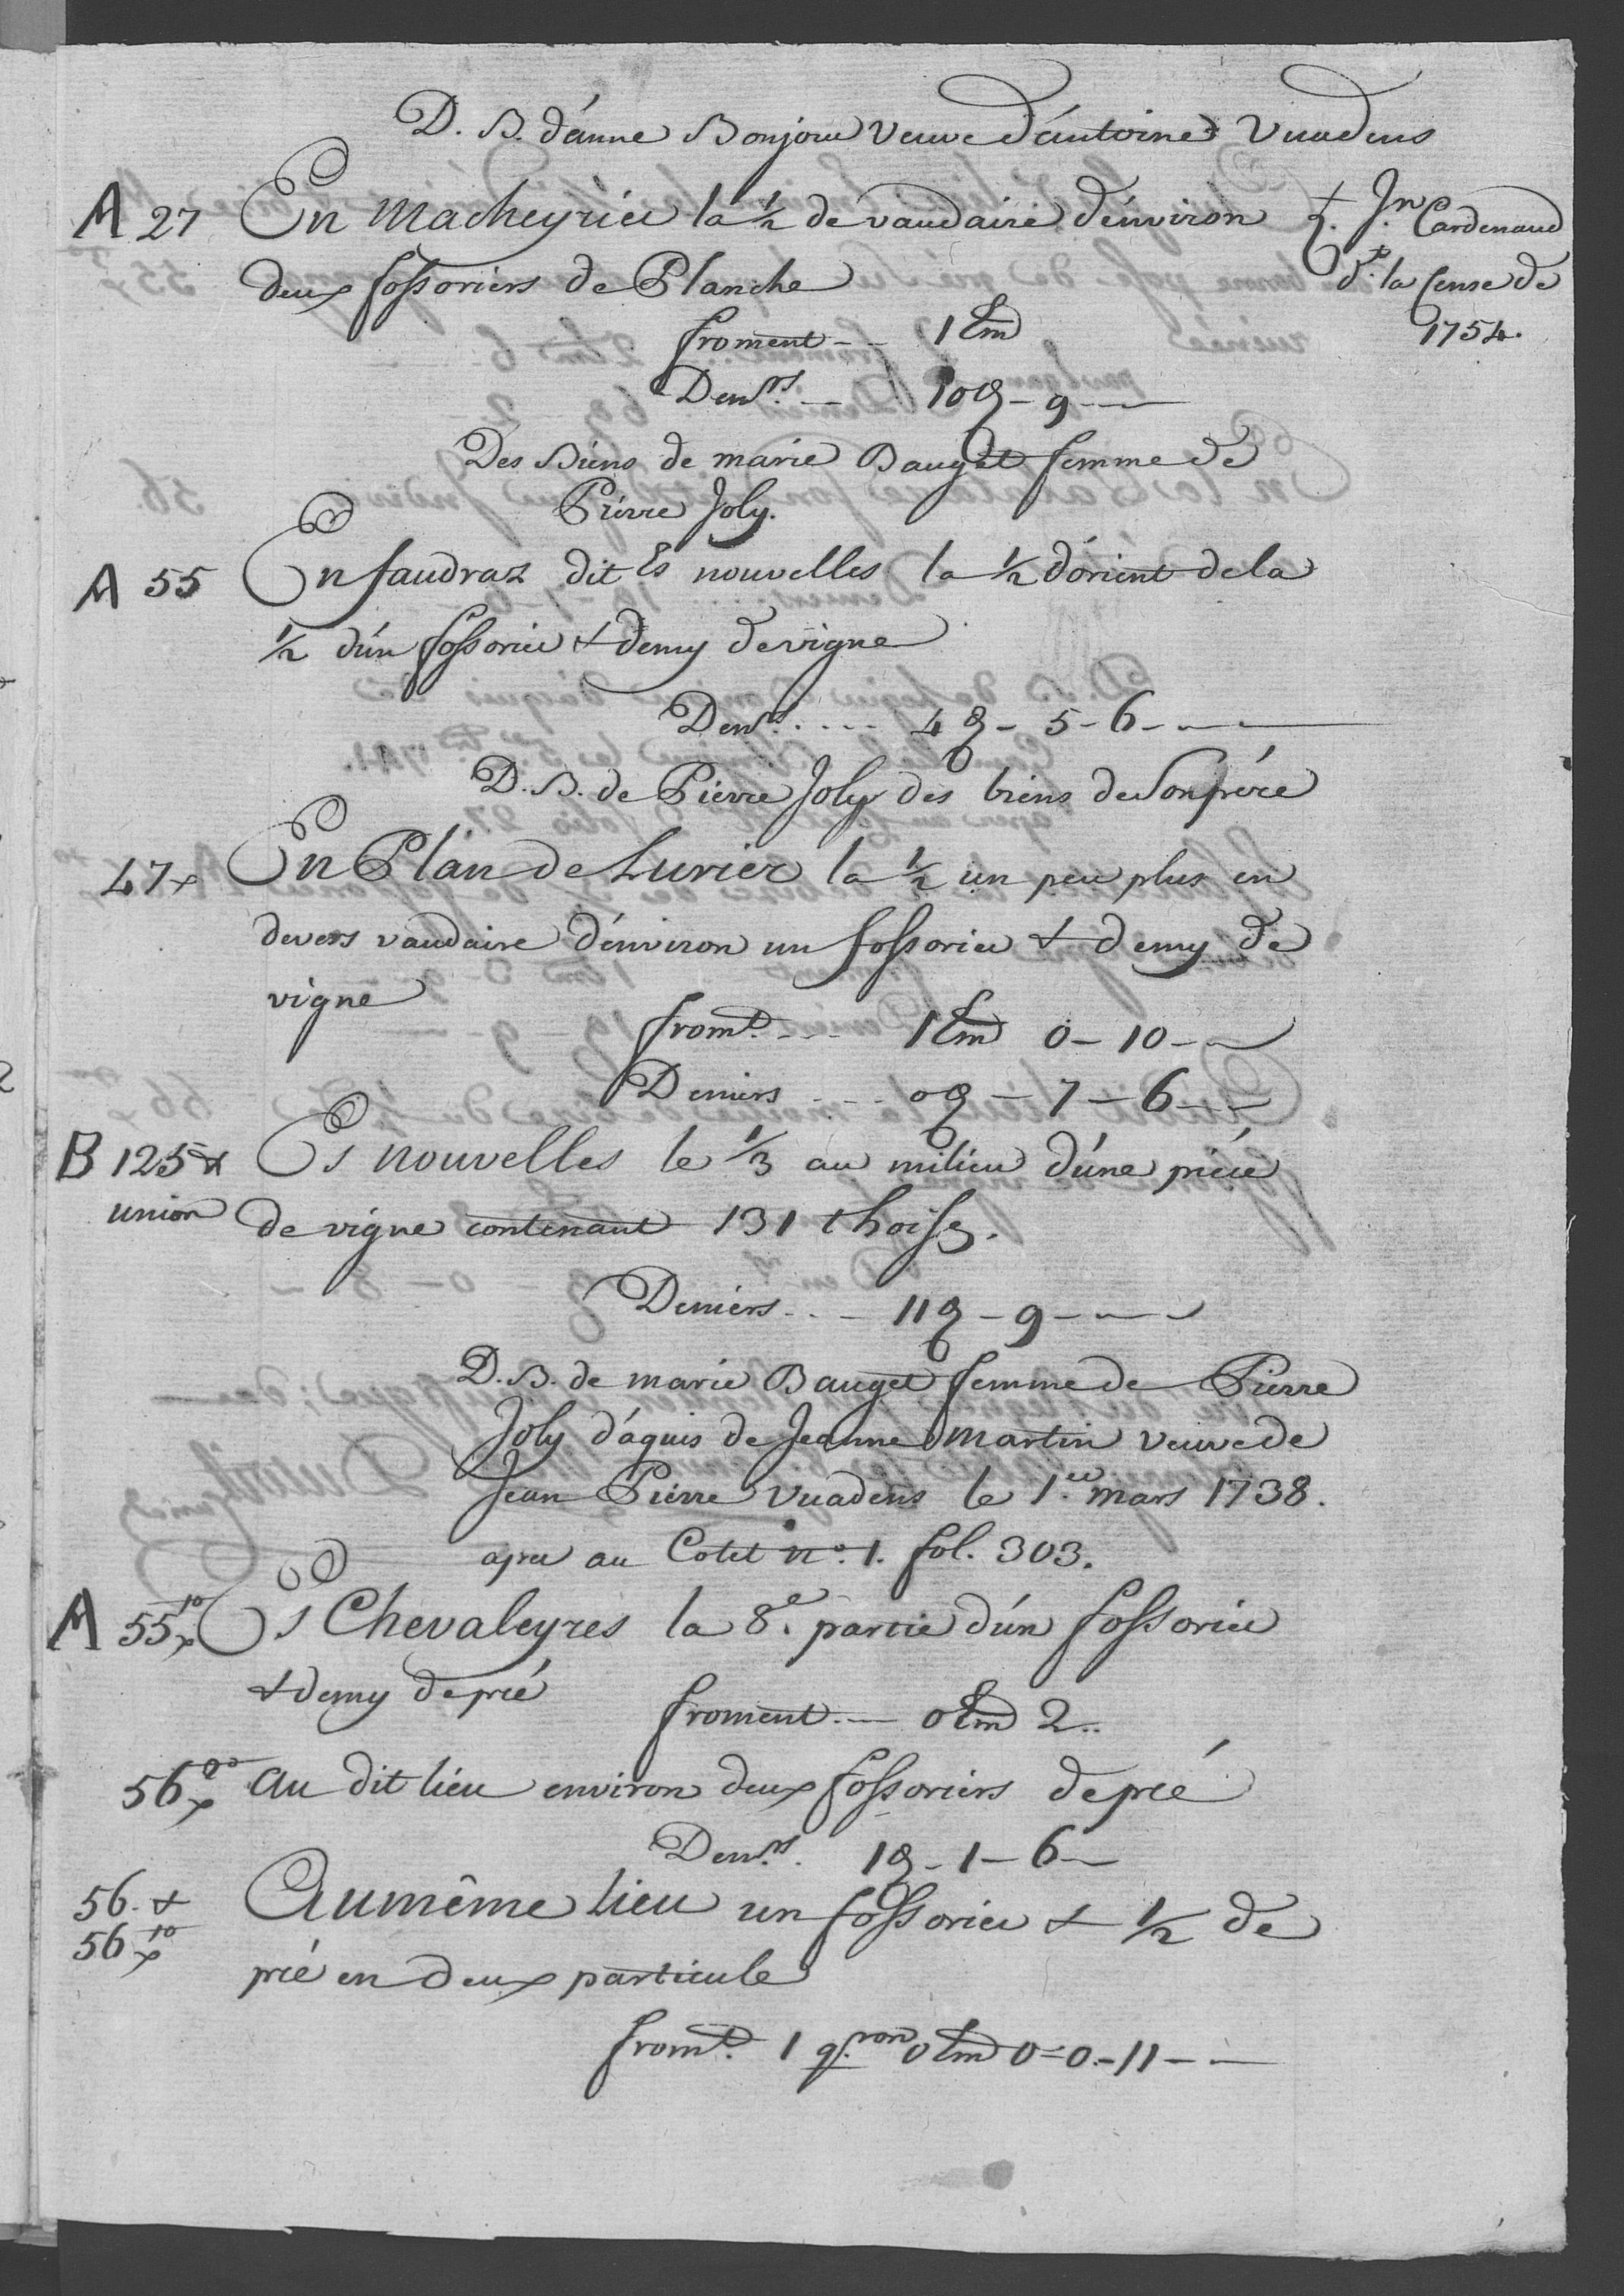 D. B. d'anne Bonjour veuve d'antoine Vuadens
A 27 En Macheyrieu la ½ de vaudaire d'environ
deux fossoriers de Planche
Jn. Cardenaud
dt. la Cense de
1754.
froment -- 1 Em
Denrs. -- 10 ꝗ - 9
Des Biens de marie Bauget femme de
Pierre Joly.
A 55 En faudraz dit Es nouvelles la ½ d'orient de la
½ d'un fossorier & demy de vigne
Denrs. .... 4 ꝗ - 5 - 6
D. B. de Pierre Joly des biens de Son père
47 x En Plan de Lurier la ½ un peu plus en
devers vaudaire d'environ un fossorier & demy de
vigne
fromt. ... 1 Em 0 - 10
Deniers ... 0 ꝗ - 7 - 6
B 125 x Es nouvelles le ⅓ au milieu d'une pièce
union de vigne contenant 131 thoises.
Deniers .. 11 ꝗ - 9
D. B. de marie Bauget femme de Pierre
Joly d'aquis de Jeanne Martin veuve de
Jean Pierre Vuadens le 1er mars 1738.
apert au Cotet no. 1. fol. 303.
A 55 x 1o Es Chevaleyres la 8e. partie d'un fossorier
& demy de pré
froment. -- 0 Em 2..
56 x 2o au dit lieu environ deux fossoriers de pré
Denrs. 1 ꝗ - 1 - 6
56. x Au même lieu un fossorier & ½ de
56 x 1o
pré en deux particule
fromt. 1 qron 0 Em 0 = 0. - 11